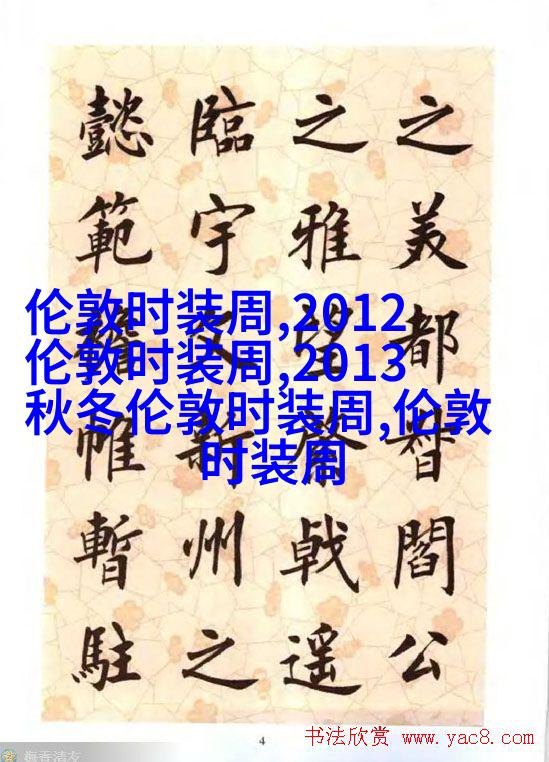 之美都督閻公
之雅望戟遥
臨宇文新州之
懿範襜帷暫駐
伦敦时装周,2012
伦敦时装周,2013
秋冬伦敦时装周,伦敦
时装周
4
书法欣赏 www.yac8.com
梅香清友